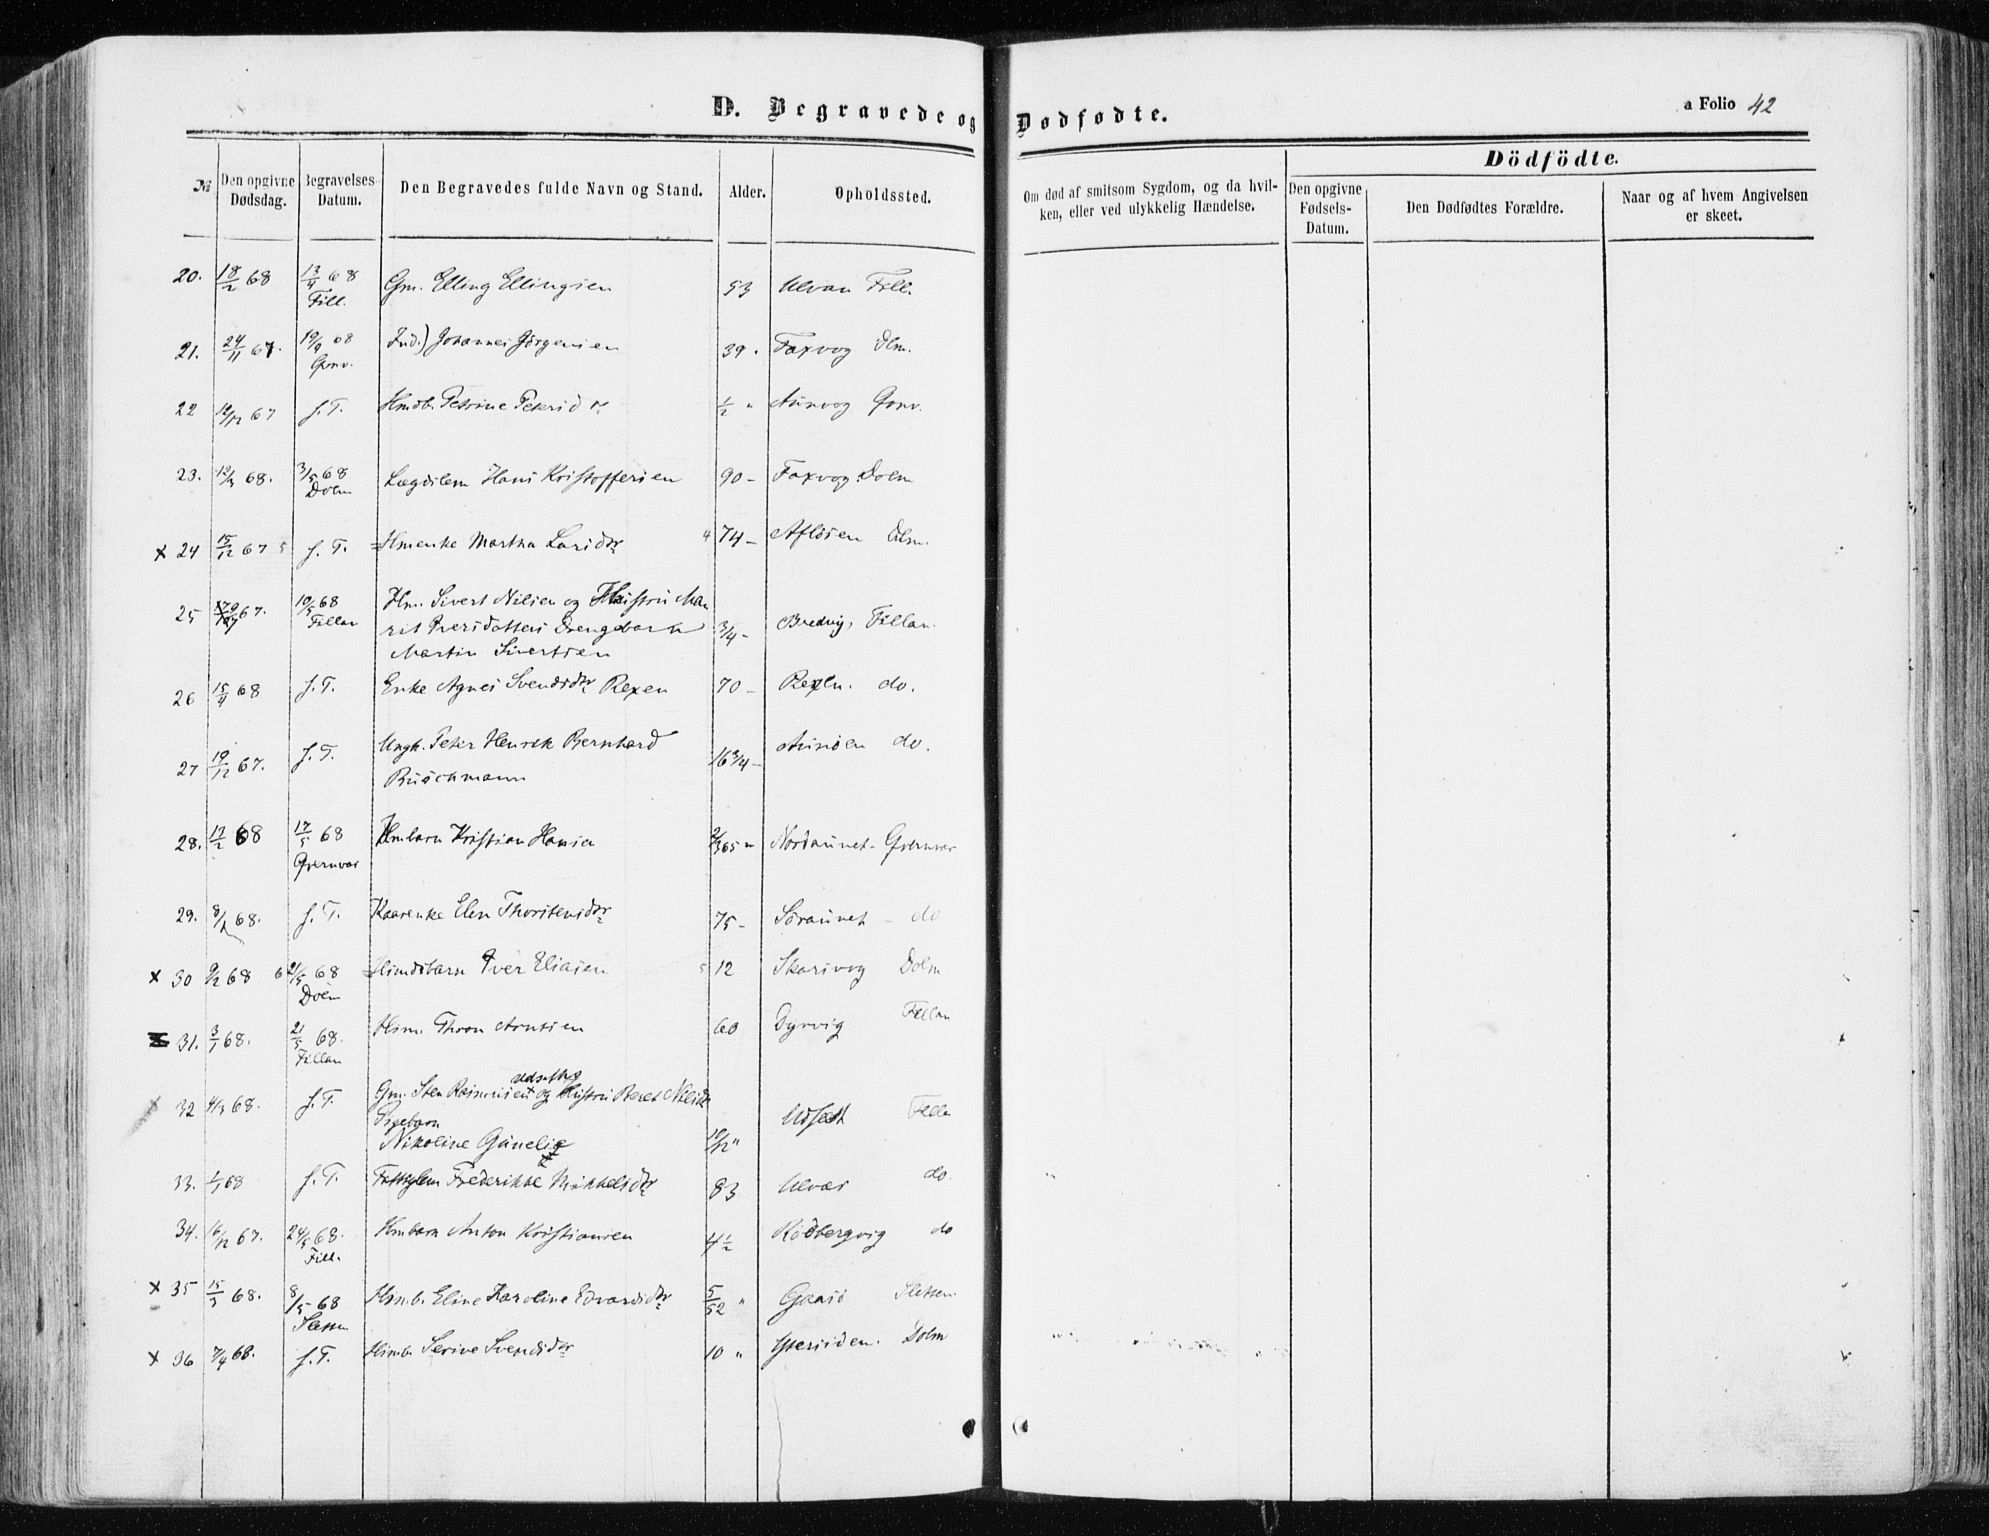 D. Begravede og Dødfødte.
a Folio 42
Dödfödte.
№ Den opgivne Dødsdag. Begravelses-Datum. Den Begravedes fulde Navn og Stand. Alder. Opholdssted. Om død af smitsom Sygdom, og da hvilken, eller ved ulykkelig Hændelse. Den opgivne Fødsels-Datum. Den Dødfødtes Forældre. Naar og af hvem Angivelsen er skeet.
20. 18/2 68 13/4 68 Gm. Elling Ellingsen 53 Ulvan Fill.
Fill.
21. 24/11 67. 19/4 68 Ind.) Johannes Jørgensen 39 . Faxvog Dlm.
22 12/12 67 s. T. Hmdb. Petrine Petersdr ½ " Aunvog
23. 12/3 68. 3/5 68 Lægdslem Hans Kristoffersen 90 – Faxvog Dolm
Dolm
x 24 15/12 67 s. T. Hmenke Martha Larsdr 74 – Dlm.
25 67. 10/5 68 Hm. Sivert Nilsen og Hustru Ma
Fillan
rit Iversdatters Drengebarn 3/4 – Bredvig, Fillan.
Martin Sivertsen
26 15/4 68 s. T. Enke Agnes Svendsdr Rexen 70 – Rexen. do.
27 19/12 67. s. T. Ungk. Peter Henrik Bernhard 16 3/4 – do.
Buschmann
28. 17/2 68 17/5 68 Hmbarn Kristian Hansen 2/365 " Nordaunet – Qvernvær
Qvernvær
29. 8/1 68. s. T. Kaarenke Elen Thorstensdr 75 – Søraunet – do
x 30 9/2 68 21/5 68 Hmdsbarn Iver Eliasen 12 Skarsvog Dolm
Dolm
31. 3/1 68. 21/5 68. Hsm. Thron Arntsen 60 Dyrvig Fillan
Fillan
Udsethg
32 4/3 68. s. T. Gm. Sten Rasmusen x og Hustru Beret Nilsdr
Pigebarn
Nikoline Gunelie 10/12 " Udset Fillan
33. 1/1 68 s. T. Fattiglem Frederikke Mikkelsdr 83 do
34. 16/12 67. 24/5 68. Hmbarn Anton Kristiansen 4 ½ Rødbergvig do
Fill.
x 35 15/3 68. 8/5 68 Hsmb. Eline Karoline Edvardsdr 5/52 " Gaasø Sletten
x 36 7/4 68. s. T. Hsmb. Serine Svendsdr 10 " Ytersiden. Dolm